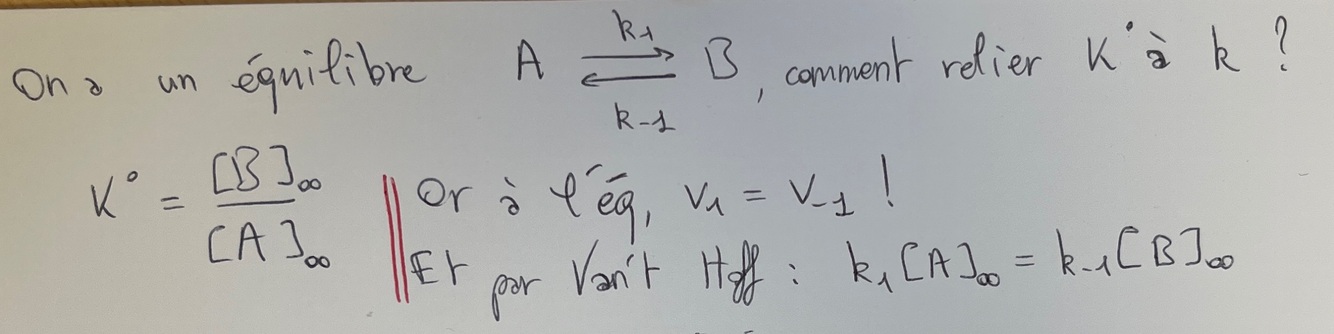 On a un équilibre A ⇌ B, comment relier K° à k ?
k1
k-1
K° = [B]∞ / [A]∞
Or à l'éq, v1 = v-1 !
Et par Van't Hoff : k1[A]∞ = k-1[B]∞